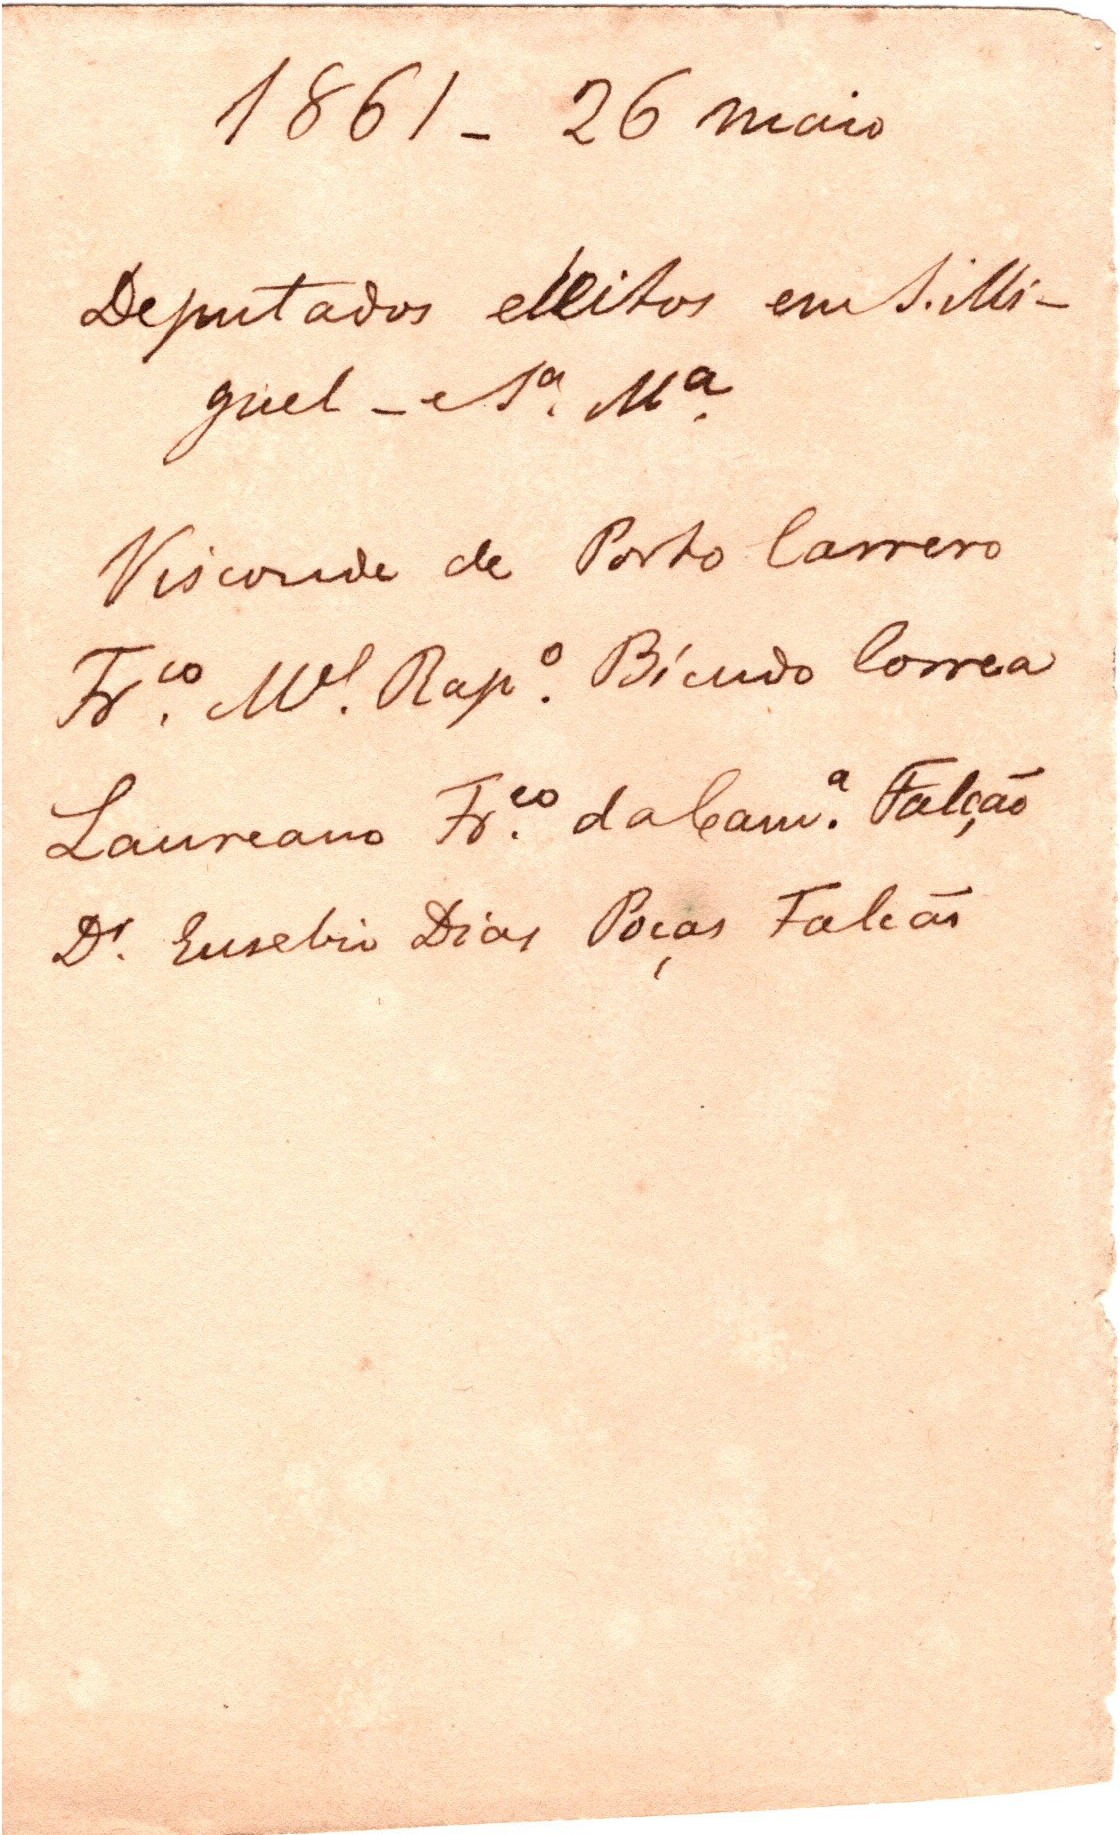 1861 - 26 maio
Deputados elleitos em S. Mi-
guel - e Sª. Mª.
Visconde de Porto Carrero
Fr.co M.el Rap.o Bicudo Correa
Laureano Fr.co da Cam.ª Falcão
Dr. Eusebio Dias Poças Falcão